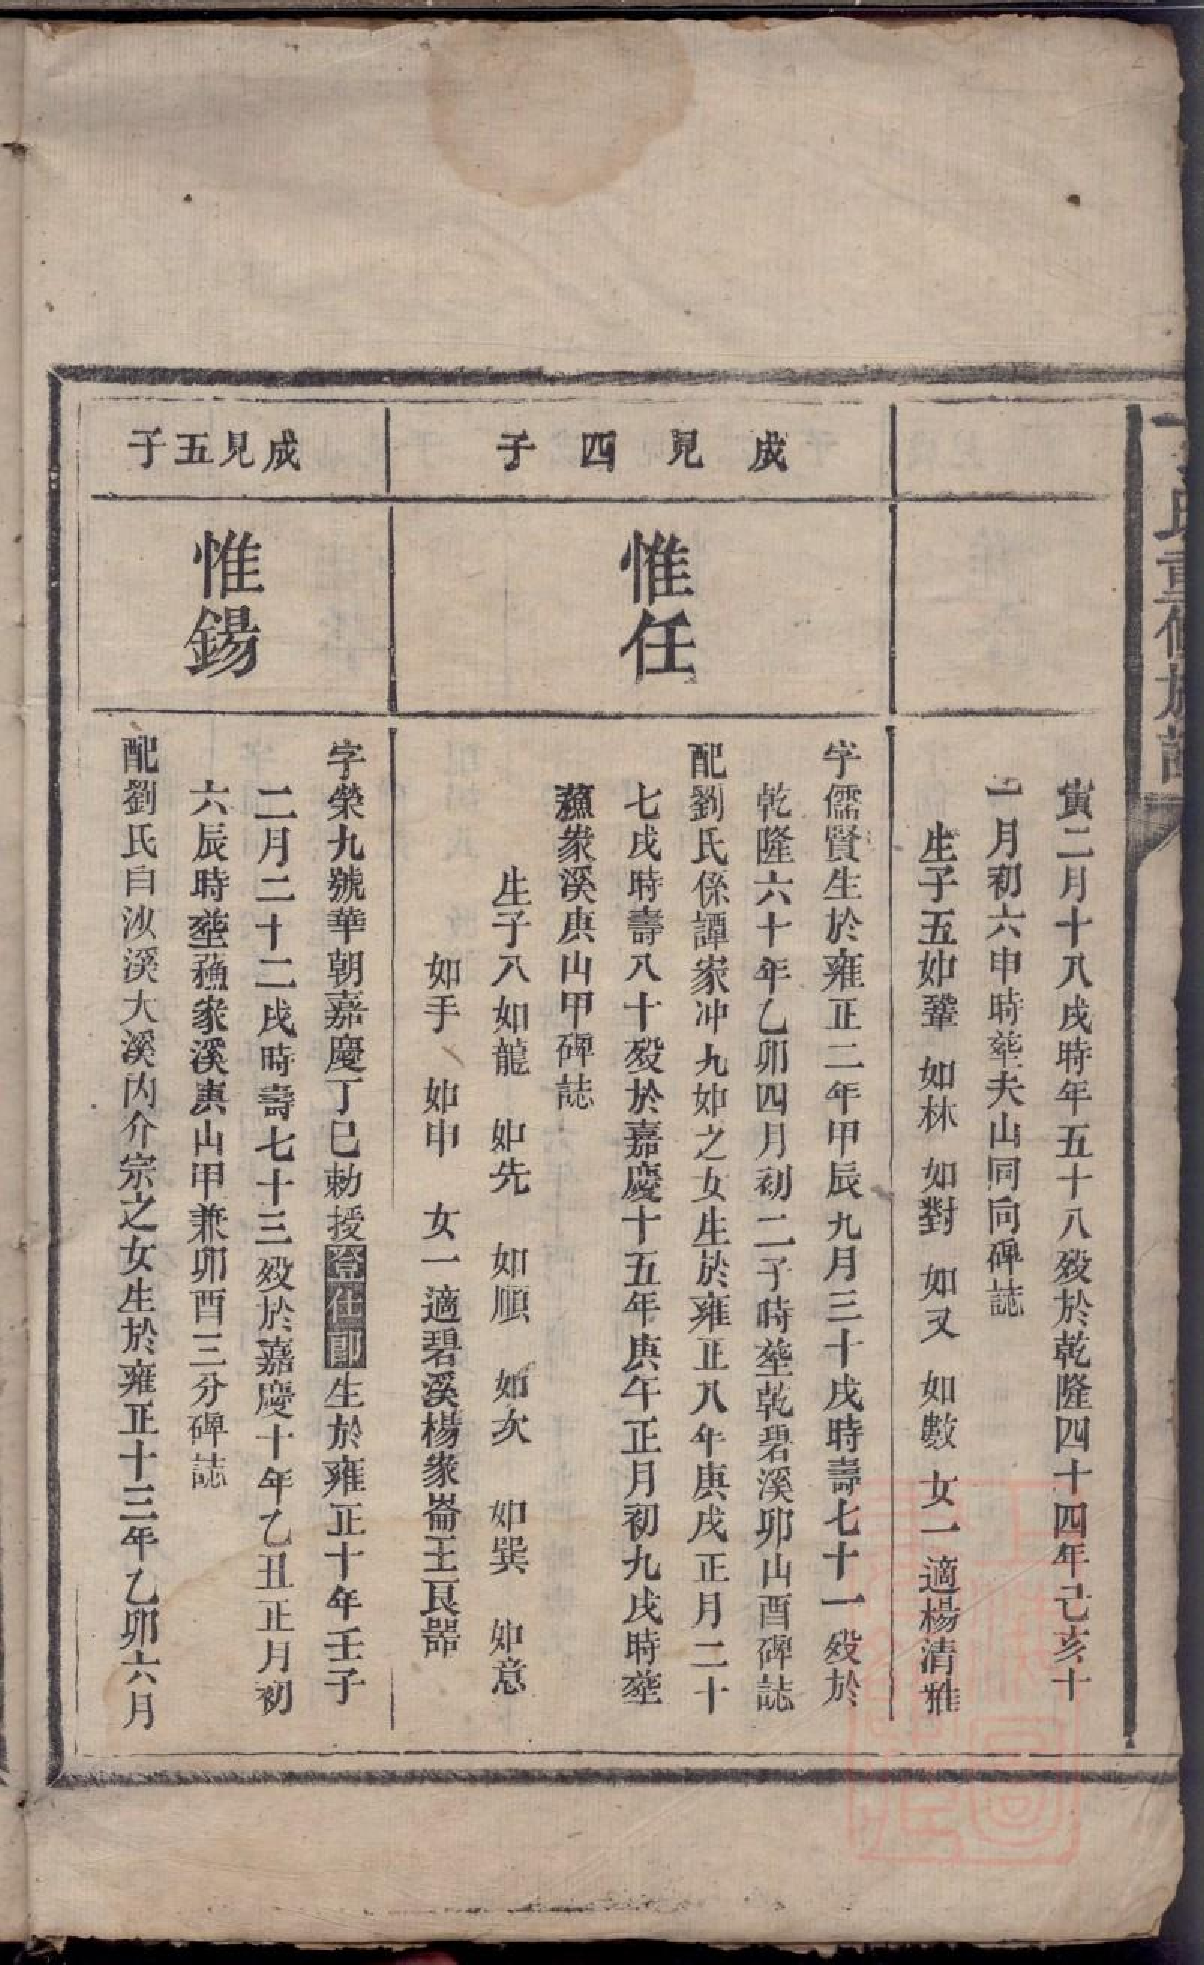 氏重修族譜
寅二月十八戌時年五十八歿於乾隆四十四年己亥十
一月初六申時塟夫山同向碑誌
生子五如鞏 如林 如對 如又 如數 女一適楊清雅
成見四子
惟任
字儒賢生於雍正二年甲辰九月三十戌時壽七十一歿於
乾隆六十年乙卯四月初二子時塟乾碧溪卯山酉碑誌
配劉氏係譚家冲九如之女生於雍正八年庚戌正月二十
七戌時壽八十歿於嘉慶十五年庚午正月初九戌時塟
蘓家溪庚山甲碑誌
生子八如龍 如先 如順 如次 如巽 如意
如手 如申 女一適碧溪楊家崙王艮噐
成見五子
惟錫
字榮九號華朝嘉慶丁巳勅授登仕郎生於雍正十年壬子
二月二十二戌時壽七十三歿於嘉慶十年乙丑正月初
六辰時塟蘓家溪庚山甲兼卯酉三分碑誌
配劉氏白沙溪大溪内介宗之女生於雍正十三年乙卯六月